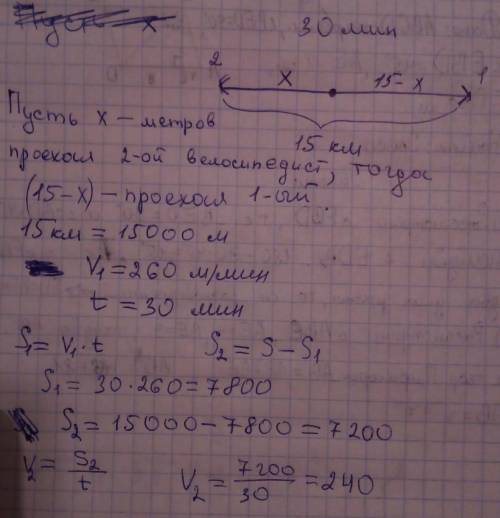 Пусть x
30 мин
2 x 15-x 1
15 км
Пусть x – метров
проехал 2-ой велосипедист, тогда
(15-x) – проехал 1-ый.
15 км = 15000 м
V₁ = 260 м/мин
t = 30 мин
S₁ = V₁·t S₂ = S – S₁
S₁ = 30·260 = 7800
S₂ = 15000 – 7800 = 7200
V₂ = S₂/t V₂ = 7200/30 = 240